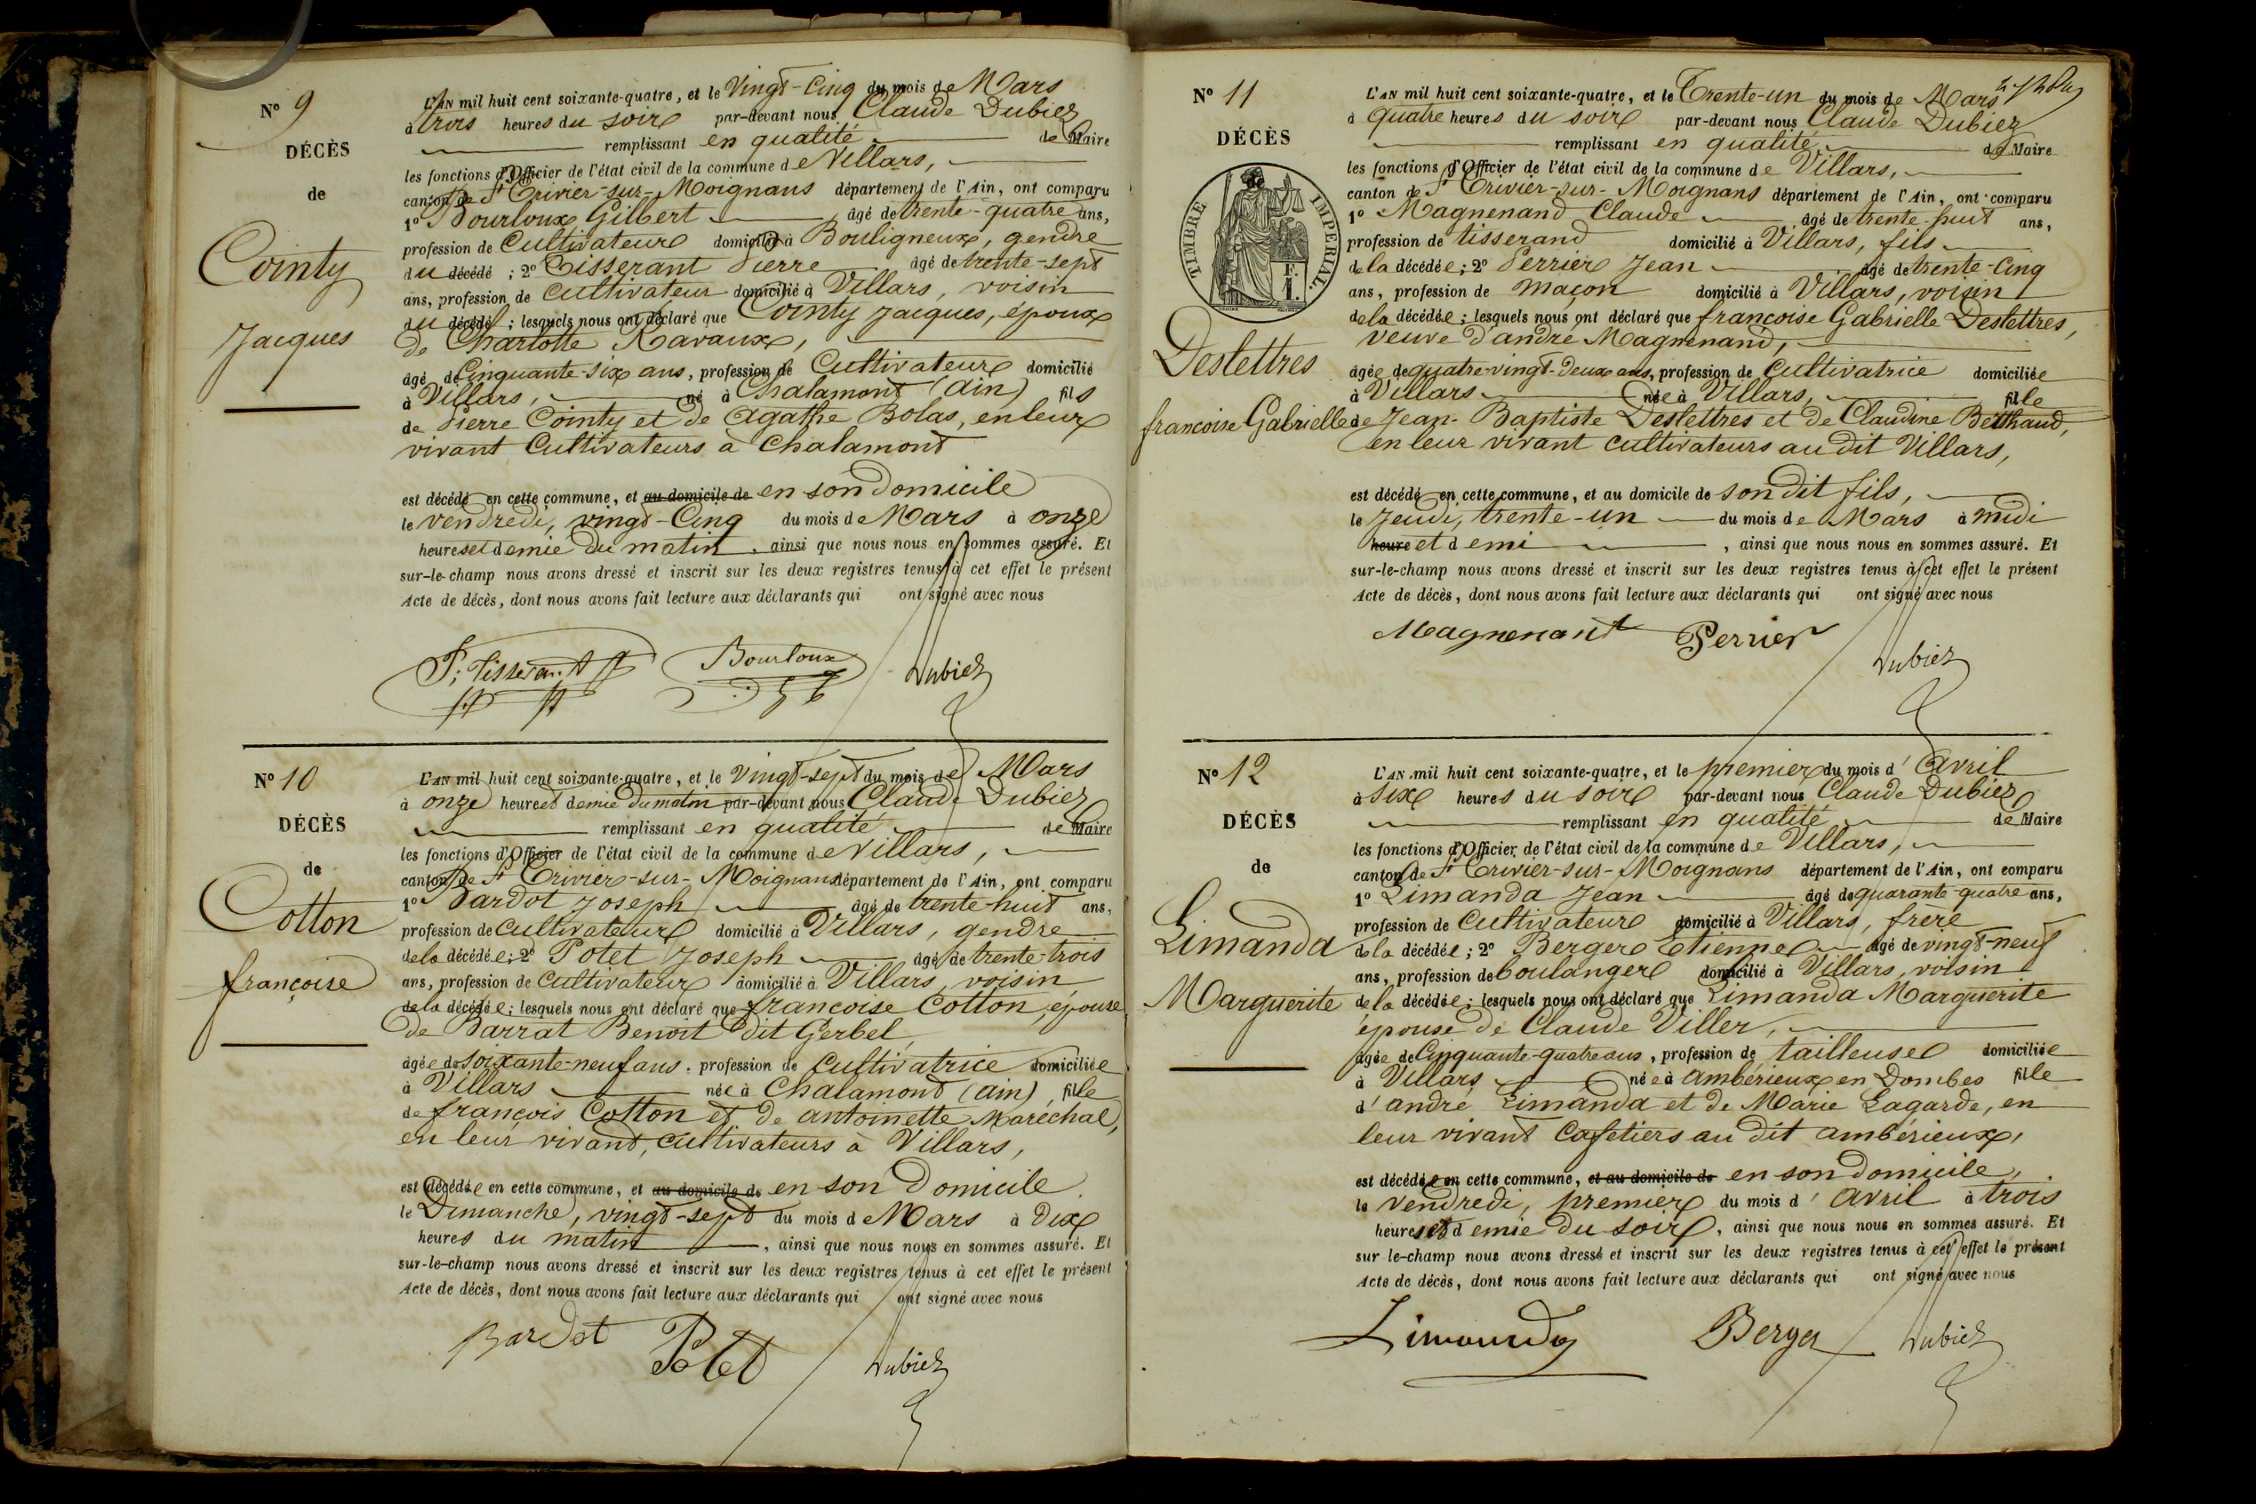 N° 9
DÉCÈS
de
Cointy
Jacques
L'AN mil huit cent soixante-quatre, et le vingt-Cinq du mois de Mars
à trois heures du soir par-devant nous Claude Dubiez
remplissant en qualité de Maire
les fonctions d'Officier de l'état civil de la commune de Villars,
canton de St Trivier-sur-Moignans département de l'Ain, ont comparu
1° Bourloux Gilbert âgé de trente-quatre ans,
profession de Cultivateur domicilié à Bouligneux, gendre
du décédé ; 2° Tisserant Pierre âgé de trente-sept
ans, profession de cultivateur domicilié à Villars, voisin
du décédé ; lesquels nous ont déclaré que Cointy Jacques, époux
de Charlotte Ravaux,
âgé de Cinquante-six ans, profession de Cultivateur domicilié
à Villars, né à Chalamont (ain) fils
de Pierre Cointy et de Agathe Bolas, en leur
vivant Cultivateurs à Chalamont
est décédé en cette commune, et au domicile de en son Domicile
le vendredi, vingt-Cinq du mois de Mars à onze
heures et demie du matin, ainsi que nous nous en sommes assuré. Et
sur-le-champ nous avons dressé et inscrit sur les deux registres tenus à cet effet le présent
Acte de décès, dont nous avons fait lecture aux déclarants qui ont signé avec nous
P. Tisserant Bourloux Dubiez
N° 10
DÉCÈS
de
Cotton
françoise
L'AN mil huit cent soixante-quatre, et le vingt-sept du mois de Mars
à onze heures et demie du matin par-devant nous Claude Dubiez
remplissant en qualité de Maire
les fonctions d'Officier de l'état civil de la commune de Villars,
canton de St Trivier-sur-Moignans département de l'Ain, ont comparu
1° Bardot Joseph âgé de trente-huit ans,
profession de cultivateur domicilié à Villars, gendre
de la décédée ; 2° Potet Joseph âgé de trente-trois
ans, profession de cultivateur domicilié à Villars voisin
de la décédée ; lesquels nous ont déclaré que françoise Cotton, épouse
de Barrat Benoit dit Gerbel,
âgée de soixante-neuf ans, profession de cultivatrice domiciliée
à Villars née à Chalamont (ain), fille
de françois Cotton et de antoinette Maréchal,
en leur vivant, cultivateurs à Villars,
est décédée en cette commune, et au domicile de en son Domicile
le Dimanche, vingt-sept du mois de Mars à dix
heures du matin, ainsi que nous nous en sommes assuré. Et
sur-le-champ nous avons dressé et inscrit sur les deux registres tenus à cet effet le présent
Acte de décès, dont nous avons fait lecture aux déclarants qui ont signé avec nous
Bardot Potet Dubiez
N° 11
DÉCÈS
TIMBRE IMPERIAL.
F.
1.
Deslettres
francoise Gabrielle
L'AN mil huit cent soixante-quatre, et le Trente-un du mois de Mars
à quatre heures du soir par-devant nous Claude Dubiez
remplissant en qualité de Maire
les fonctions d'Officier de l'état civil de la commune de Villars,
canton de St Trivier-sur-Moignans département de l'Ain, ont comparu
1° Magnenand Claude âgé de trente-huit ans,
profession de tisserand domicilié à Villars, fils
de la décédée ; 2° Perrier Jean âgé de trente-Cinq
ans, profession de maçon domicilié à Villars, voisin
de la décédée ; lesquels nous ont déclaré que francoise Gabrielle Deslettres,
veuve d'andré Magnenand,
âgée de quatre-vingt-deux ans, profession de Cultivatrice domiciliée
à Villars née à Villars, fille
de Jean-Baptiste Deslettres et de Claudine Betthaud,
en leur vivant cultivateurs au dit Villars,
est décédé en cette commune, et au domicile de son dit fils,
le Jeudi, trente-un du mois de Mars à midi
heure et demi, ainsi que nous nous en sommes assuré. Et
sur-le-champ nous avons dressé et inscrit sur les deux registres tenus à cet effet le présent
Acte de décès, dont nous avons fait lecture aux déclarants qui ont signé avec nous
Magnenant Perrier Dubiez
N° 12
DÉCÈS
de
Limanda
Marguerite
L'AN mil huit cent soixante-quatre, et le premier du mois d'avril
à six heures du soir par-devant nous Claude Dubiez
remplissant en qualité de Maire
les fonctions d'Officier de l'état civil de la commune de Villars,
canton de St Trivier-sur-Moignans département de l'Ain, ont comparu
1° Limanda Jean âgé de quarante-quatre ans,
profession de Cultivateur domicilié à Villars, frère
de la décédée ; 2° Berger Etienne âgé de vingt-neuf
ans, profession de boulanger domicilié à Villars, voisin
de la décédée ; lesquels nous ont déclaré que Limanda Marguerite
épouse de Claude Viller,
âgée de Cinquante-quatre ans, profession de tailleuse domiciliée
à Villars née à ambérieux en Dombes fille
d'andré Limanda et de Marie Lagarde, en
leur vivant Cafetiers au dit ambérieux,
est décédée en cette commune, et au domicile de en son Domicile,
le vendredi, premier du mois d'avril à trois
heures et demie du soir, ainsi que nous nous en sommes assuré. Et
sur-le-champ nous avons dressé et inscrit sur les deux registres tenus à cet effet le présent
Acte de décès, dont nous avons fait lecture aux déclarants qui ont signé avec nous
Limanda Berger Dubiez